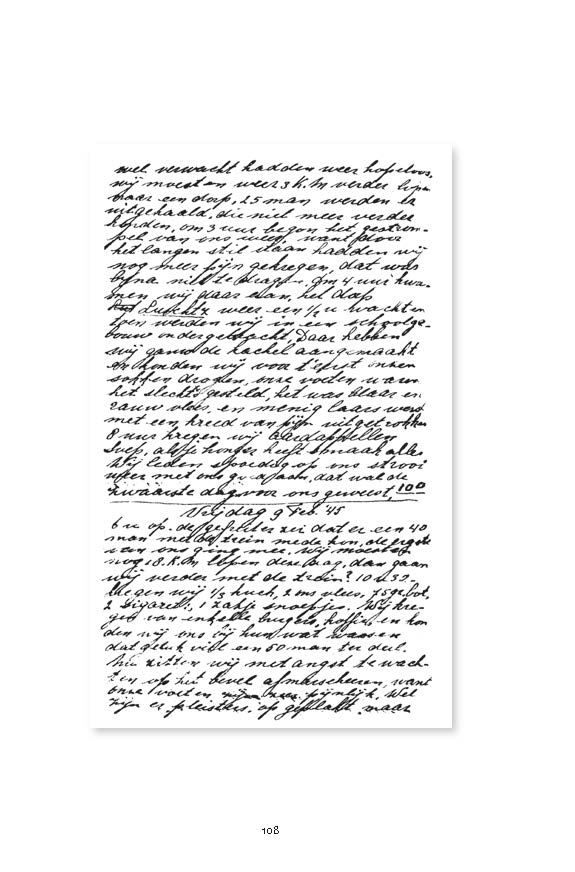 wel verwacht hadden weer hopeloos,
wij moesten weer 3 K.M verder lopen
naar een dorp, 25 man werden er
uitgehaald, die niet meer verder
konden, om 3 uur begon het gestrom-
pel van ons weer, want door
het langen stil staan hadden wij
nog meer pijn gekregen, dat was
bijna niet te dragen. Om 4 uur kwa-
men wij daar aan, het dorp
weer een ½ u wachten
toen werden wij in een schoolge-
bouw ondergebracht, Daar hebben
wij gauw de kachel aangemaakt
en konden wij voor t eerst onzen
sokken drogen, onze voeten waren
het slechts gesteld, het was blaar en
rauw vlees, en menig laars werd
met een kreed van pijn uitgetrokken
8 uur kregen wij aardappellen
Soep, als je honger heeft smaakt alles
Wij leden spoedig op ons strooi
neer met ons gaan, dat was de
zwaarste dag voor ons geweest, 100
Vrijdag 9 Feb. '45
6 u op. de gefreiter zei dat er een 40
man met de trein mede kon, de ergste
van ons ging mee. Wij moesten
nog 18 K.M lopen deze dag, dan gaan
wij verder met de trein? 10 u 32-
kregen wij ⅓ kuch, 2 ons vlees, 75 gr bot,
2 Sigaret., 1 zakje snoepjes. Wij kre-
gen van enkelle burgers, koffie en kon
den wij ons bij hun wat wassen
dat geluk viel een 50 man ten deel.
Nu zitten wij met angst te wach-
ten op het bevel afmarscheeren, want
onze voeten zijn zeer pijnlijk. Wel
zijn er pleisters op geplakt maar
108